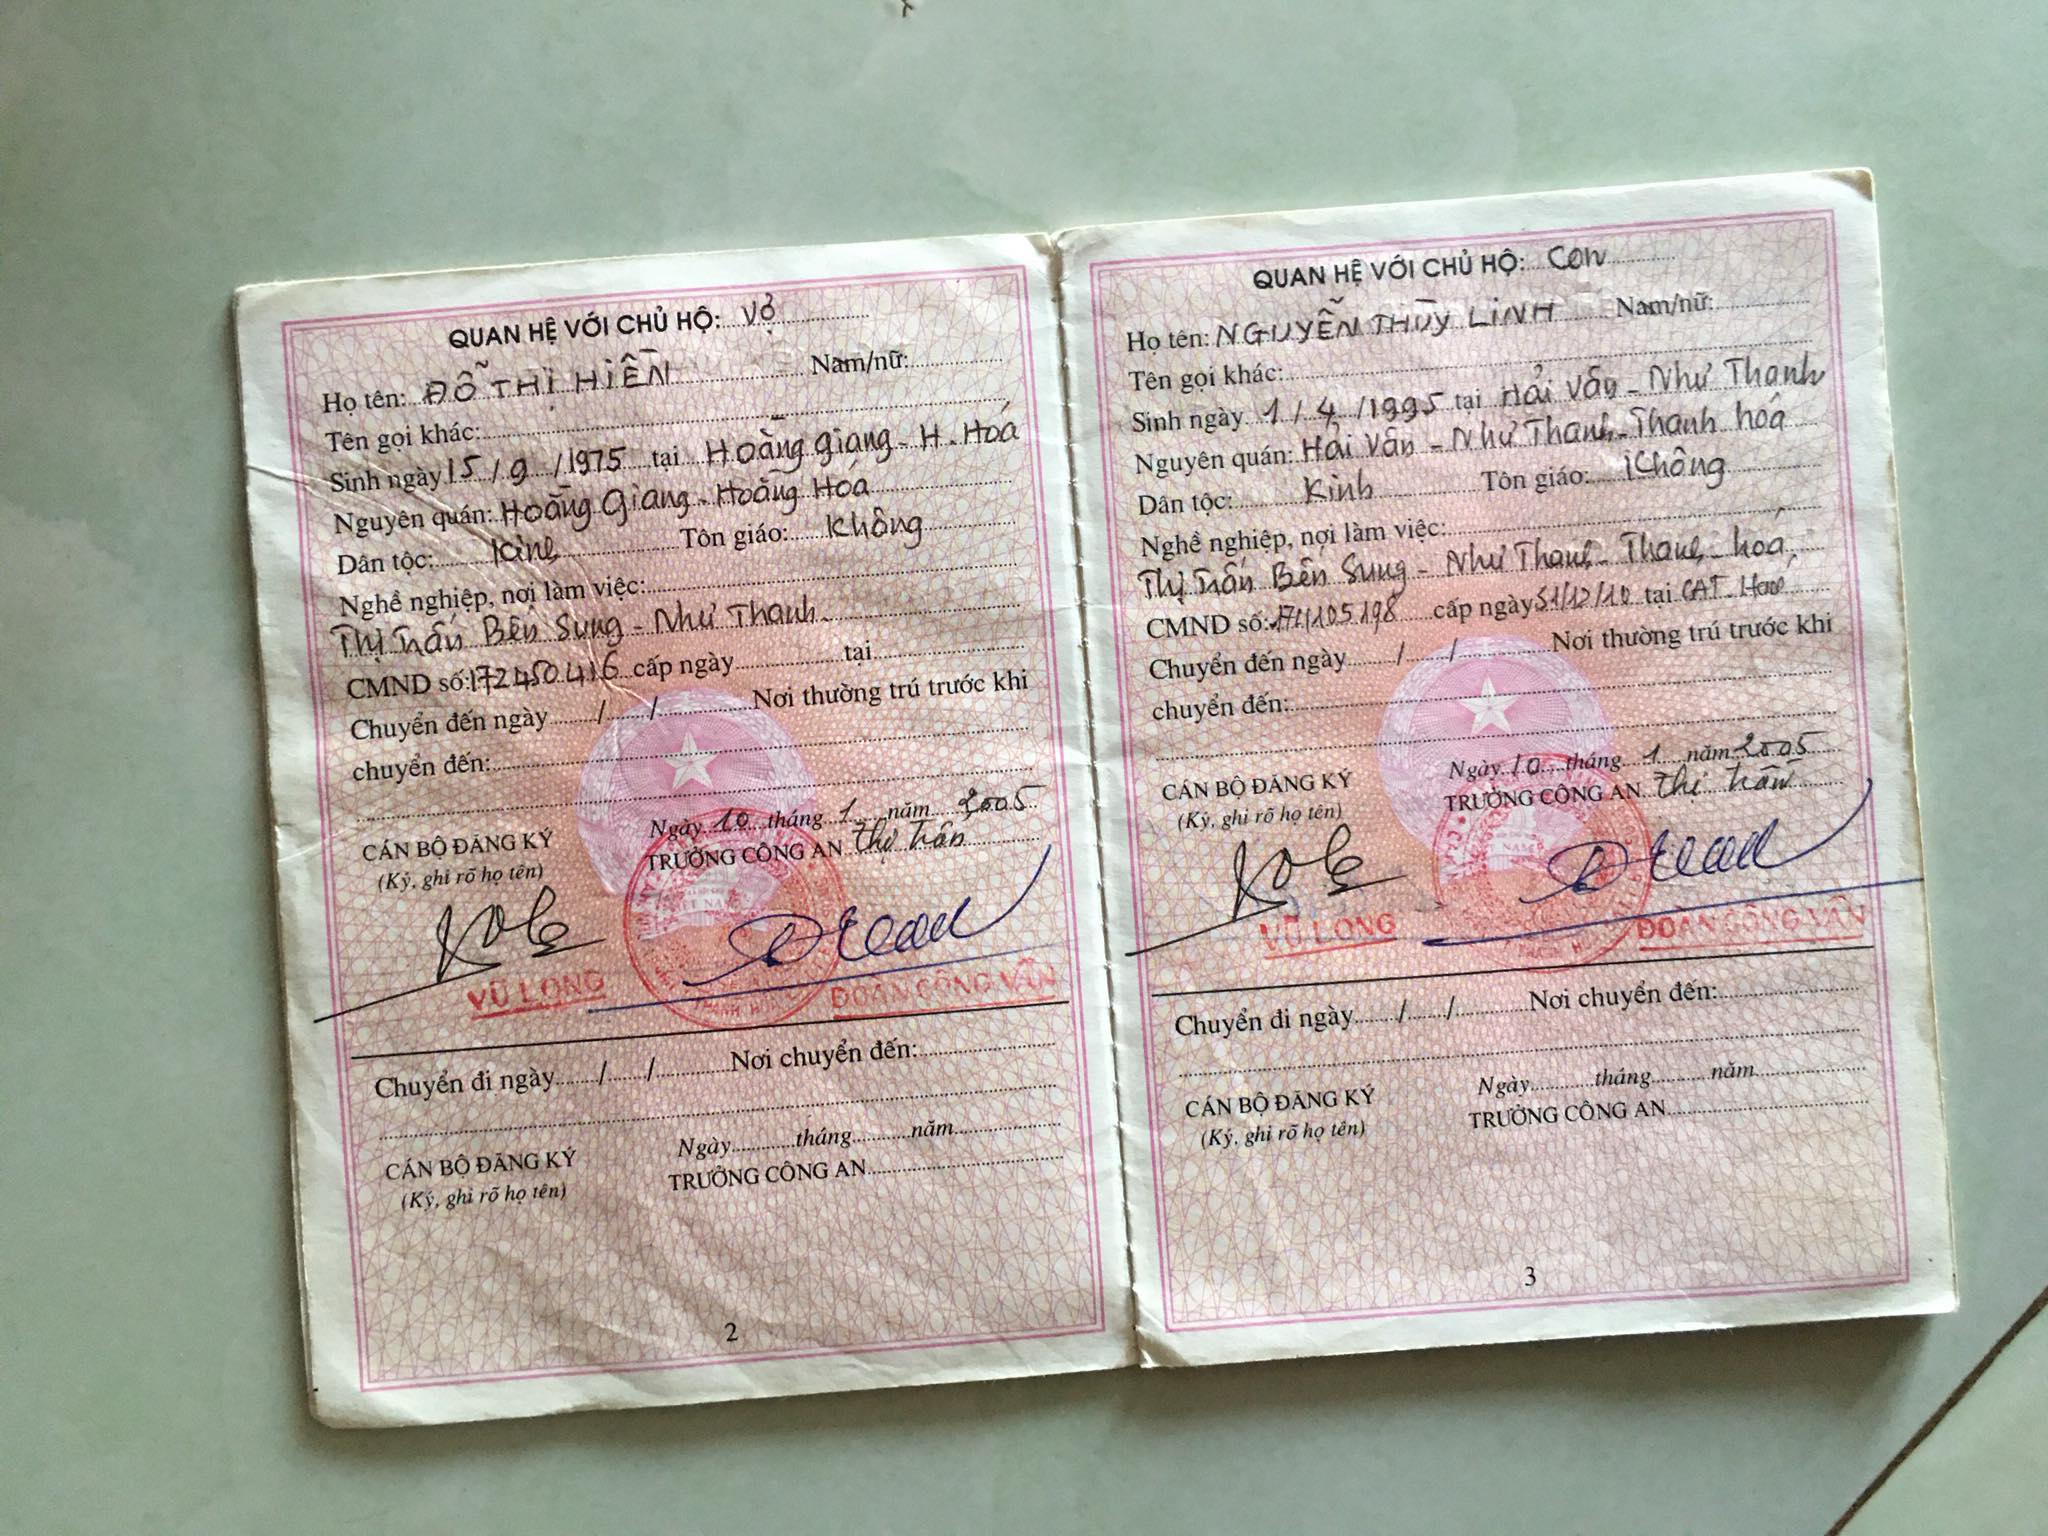 QUAN HỆ VỚI CHỦ HỘ: Vợ
Họ tên: ĐỖ THỊ HIỀN Nam/nữ:
Tên gọi khác:
Sinh ngày 15/9/1975 tại Hoằng Giang - H. Hoá
Nguyên quán: Hoằng Giang - Hoằng Hoá
Dân tộc: Kinh Tôn giáo: Không
Nghề nghiệp, nơi làm việc:
Thị trấn Bến Sung - Như Thanh
CMND số: 172450416 cấp ngày tại
Chuyển đến ngày / / Nơi thường trú trước khi
chuyển đến:
Ngày 10 tháng 1 năm 2005
CÁN BỘ ĐĂNG KÝ TRƯỞNG CÔNG AN Thị trấn
(Ký, ghi rõ họ tên)
VŨ LONG ĐOÀN CÔNG VÂN
Chuyển đi ngày / / Nơi chuyển đến:
Ngày tháng năm
CÁN BỘ ĐĂNG KÝ TRƯỞNG CÔNG AN
(Ký, ghi rõ họ tên)
2
QUAN HỆ VỚI CHỦ HỘ: Con
Họ tên: NGUYỄN THÙY LINH Nam/nữ:
Tên gọi khác:
Sinh ngày 1/4/1995 tại Hải Vân - Như Thanh
Nguyên quán: Hải Vân - Như Thanh - Thanh hóa
Dân tộc: Kinh Tôn giáo: Không
Nghề nghiệp, nơi làm việc:
Thị trấn Bến Sung - Như Thanh - Thanh hoá,
CMND số: cấp ngày tại CAT. Hoá
Chuyển đến ngày / / Nơi thường trú trước khi
chuyển đến:
Ngày 10 tháng 1 năm 2005
CÁN BỘ ĐĂNG KÝ TRƯỞNG CÔNG AN Thị trấn
(Ký, ghi rõ họ tên)
VŨ LONG ĐOÀN CÔNG VÂN
Chuyển đi ngày / / Nơi chuyển đến:
Ngày tháng năm
CÁN BỘ ĐĂNG KÝ TRƯỞNG CÔNG AN
(Ký, ghi rõ họ tên)
3